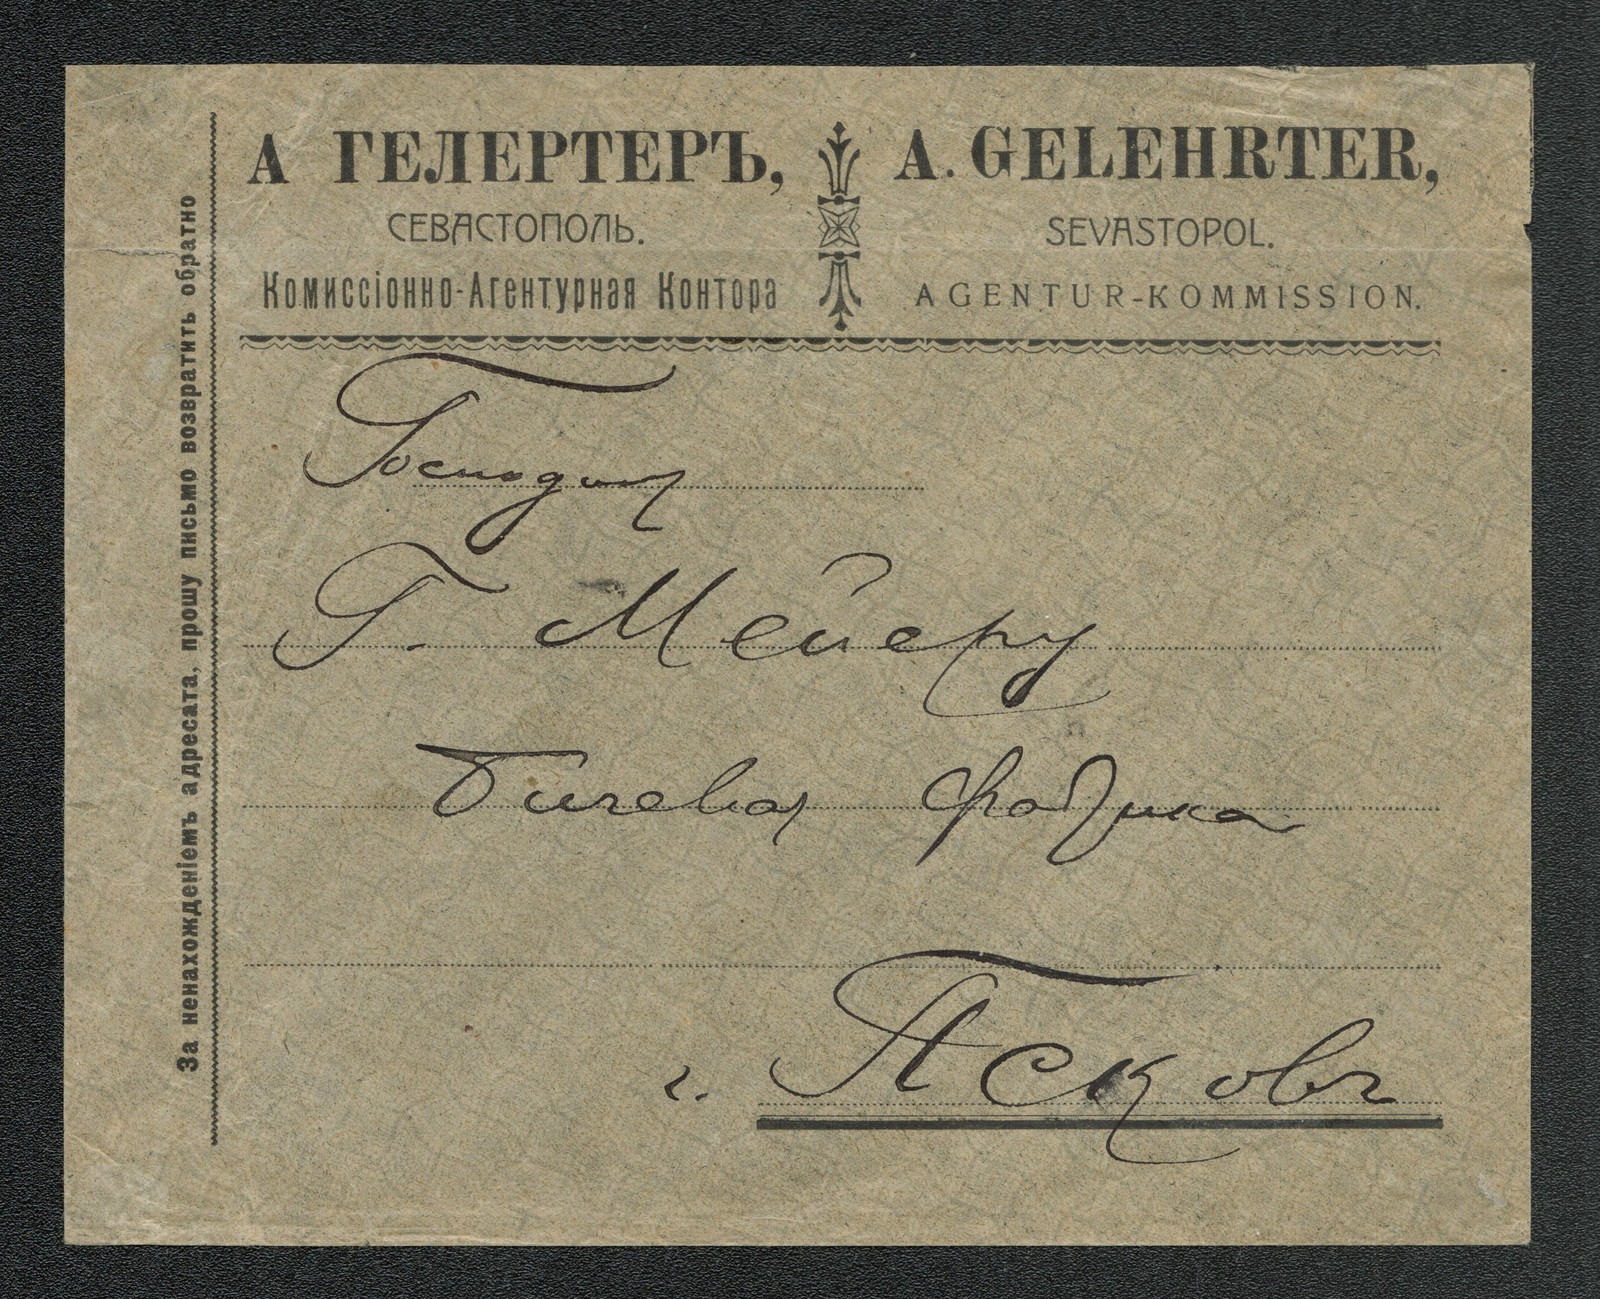 А ГЕЛЕРТЕРЪ,
СЕВАСТОПОЛЬ.
Комиссіонно-Агентурная Контора
A. GELEHRTER,
SEVASTOPOL.
AGENTUR-KOMMISSION.
За ненахожденіемъ адресата, прошу письмо возвратить обратно
Г. Мейеру
Бичевая фабрика
г. Псковъ